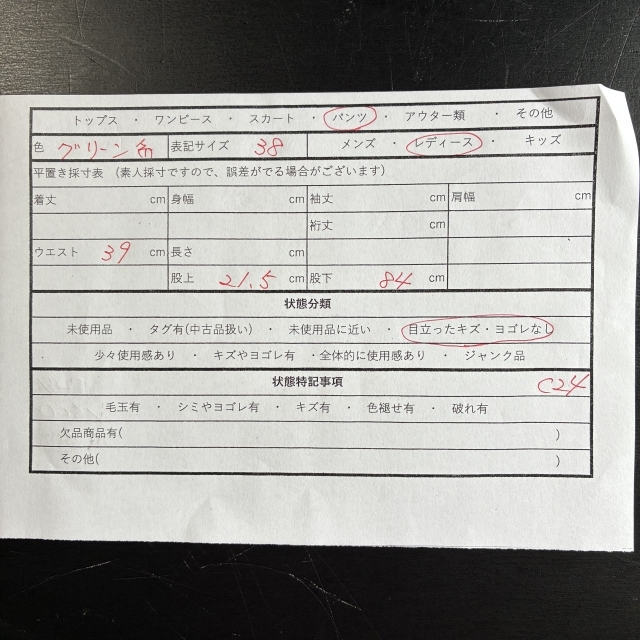 トップス ・ ワンピース ・ スカート ・ パンツ ・ アウター類 ・ その他
色 グリーン系 表記サイズ 38 メンズ ・ レディース ・ キッズ
平置き採寸表 (素人採寸ですので、誤差がでる場合がございます)
着丈 cm 身幅 cm 袖丈 cm 肩幅 cm
裄丈 cm
ウエスト 39 cm 長さ cm
股上 21.5 cm 股下 84 cm
状態分類
未使用品 ・ タグ有(中古品扱い) ・ 未使用品に近い ・ 目立ったキズ・ヨゴレなし
少々使用感あり ・ キズやヨゴレ有 ・全体的に使用感あり ・ ジャンク品
状態特記事項 C24
毛玉有 ・ シミやヨゴレ有 ・ キズ有 ・ 色褪せ有 ・ 破れ有
欠品商品有( )
その他( )